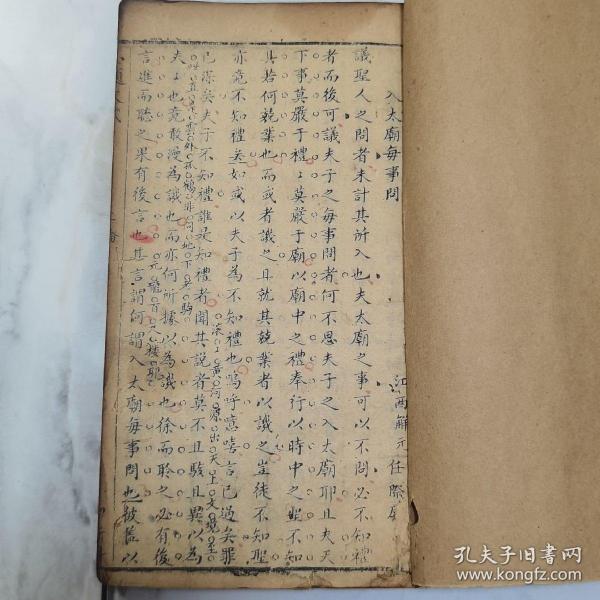 入太廟每事問
江西解元 任際
議聖人之問者未計其所入也夫太廟之事可以不問必不知禮
者而後可議夫子之每事問者何不思夫子之入太廟耶且夫天
下事莫嚴于禮〻莫嚴于廟以廟中之禮奉行以時中之聖不知
其若何兢業也而或者譏之且就其兢業者以譏之豈徒不知聖
亦竟不知禮矣如或以夫子為不知禮也嗚呼噫嘻言已過矣罪
已深矣夫子不知禮誰是知禮者聞其説者莫不且駭且異以為
夫〻也竟敢漫為譏也而亦何所據以為譏也徐而聆之必有後
言進而聽之果有後言也其言謂何謂入太廟每事問也彼蓋以
孔夫子旧书网
www.kongfz.com